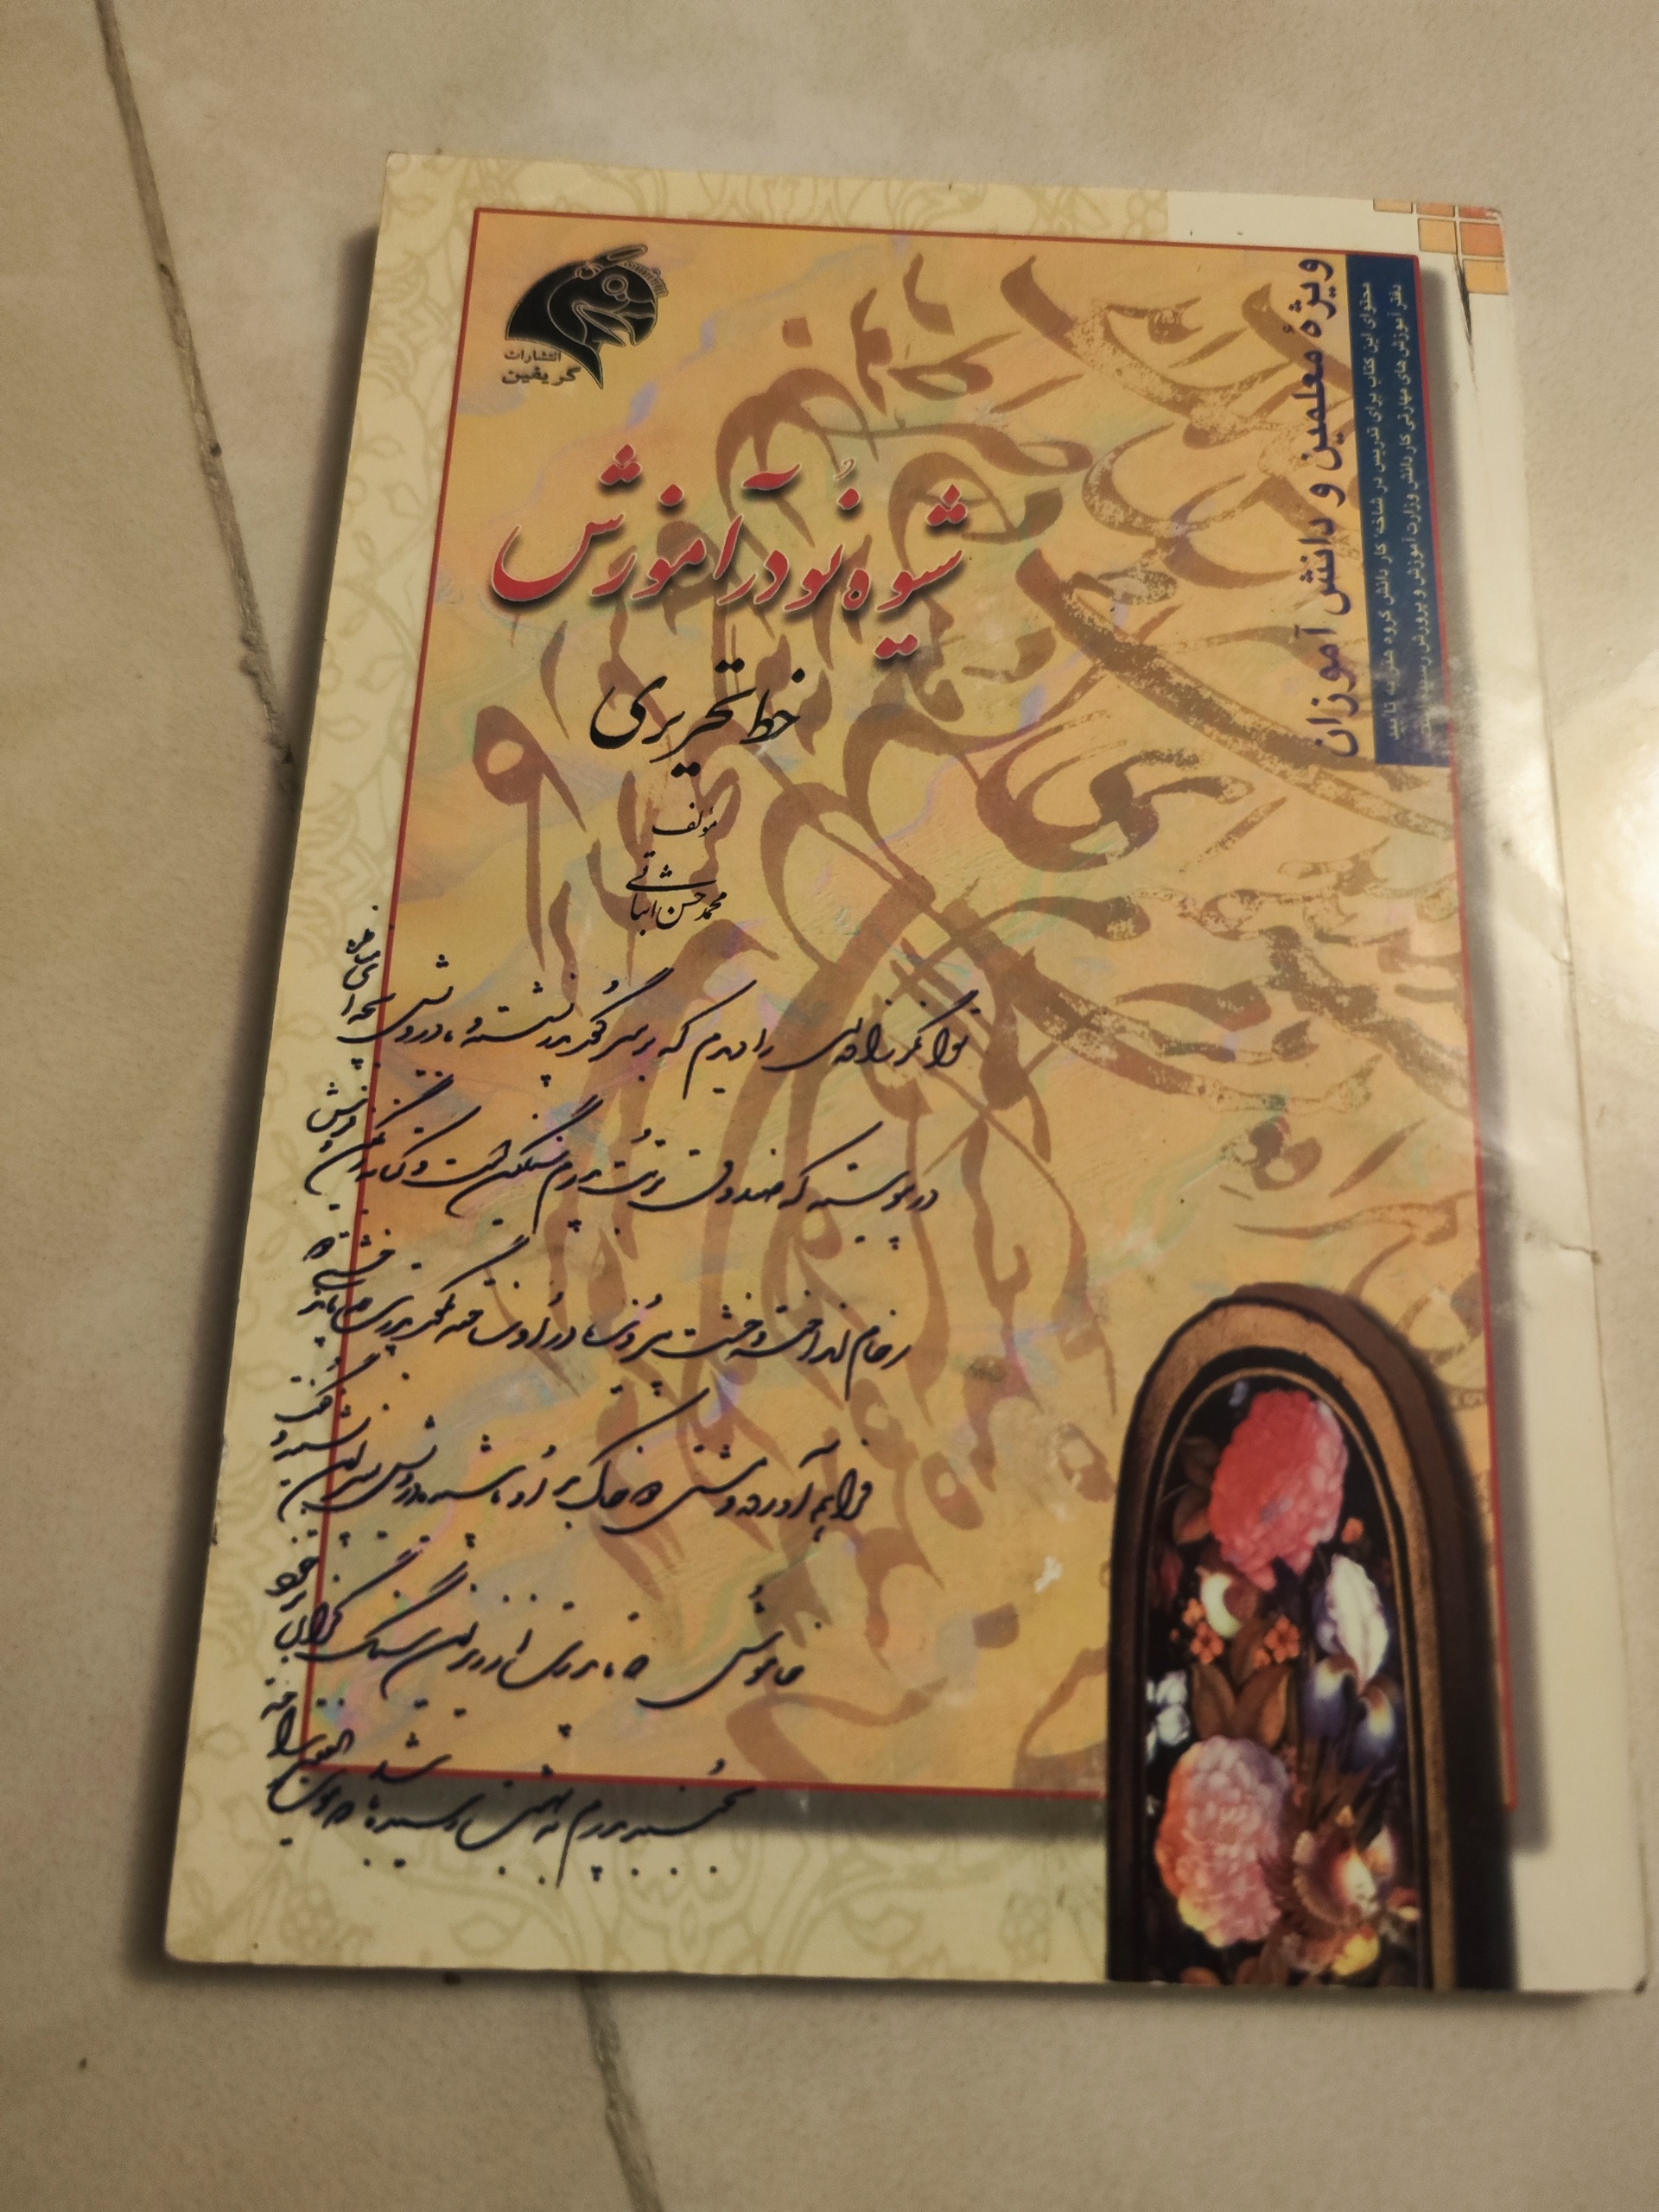 انتشارات
گریفین
ویژهٔ معلمین و دانش آموزان
محتوای این کتاب برای تدریس در شاخه کار دانش گروه هنر به تایید
دفتر آموزش های مهارتی کار دانش وزارت آموزش و پرورش رسیده است
شیوه نُو در آموزش
خط تحریری
مؤلف
محمد حسن اثباتی
توانگر زاده‌ای را دیدم که بر سر گور پدر نشسته و با درویش بچه‌ای مناظره
در پیوسته که صندوق تربت پدرم سنگین است و کتابه رنگین و فرش
رخام انداخته و خشت پیروزه در او ساخته به گور پدرت چه ماند خشتی دو
فراهم آورده و مشتی دو خاک بر او پاشیده درویش پسر این بشنید و گفت
خاموش که تا پدرت از زیر آن سنگ گران بر خود
بجنبد پدرم به بهشت رسیده باشد